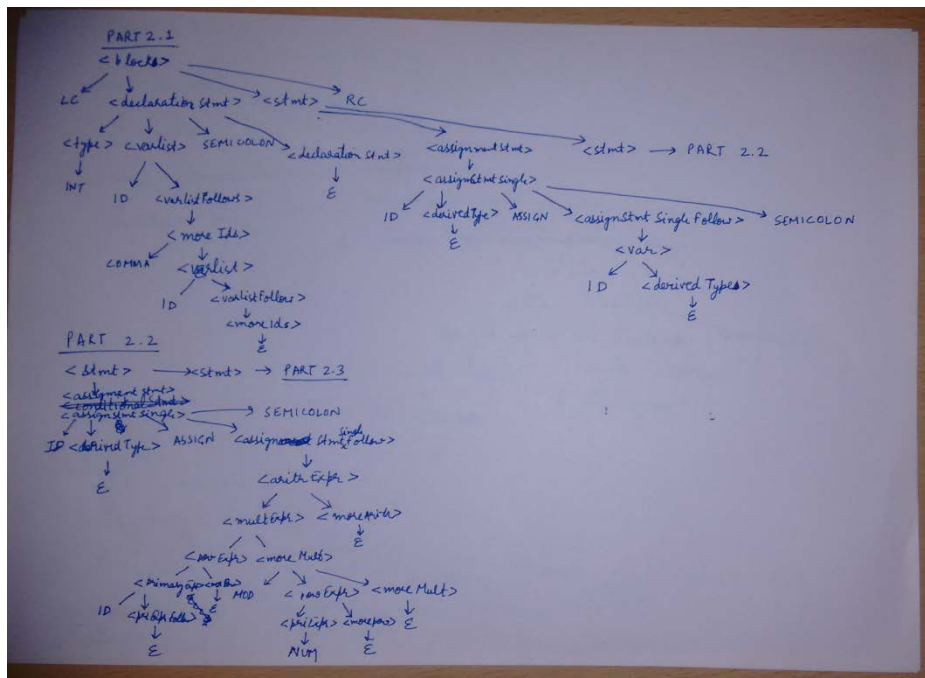 PART 2.1
<blocks>
LC <declaration stmt> <stmt> RC
<type> <varlist> SEMICOLON <declaration stmt> <assignment stmt> <stmt> → PART 2.2
INT ID <varlistFollows> ε <assignstmt single>
<more Ids> ID <derivedType> ASSIGN <assignStmt Single Follow> SEMICOLON
COMMA <varlist> ε <var>
ID <varlistFollow> ID <derived Types>
<moreIds> ε
ε
PART 2.2
<stmt> → <stmt> → PART 2.3
<assigment stmt>
<conditional stmt>
<assignstmt single> → SEMICOLON
ID <derivedType> ASSIGN <assign stmt single Follow>
ε <arithExpr>
<multExpr> <moreArith>
ε
<powExpr> <more Mult>
<primaryExp> MOD <powExpr> <more Mult>
ID <priExpFollow> ε <priExpr> <morepow> ε
ε NUM ε